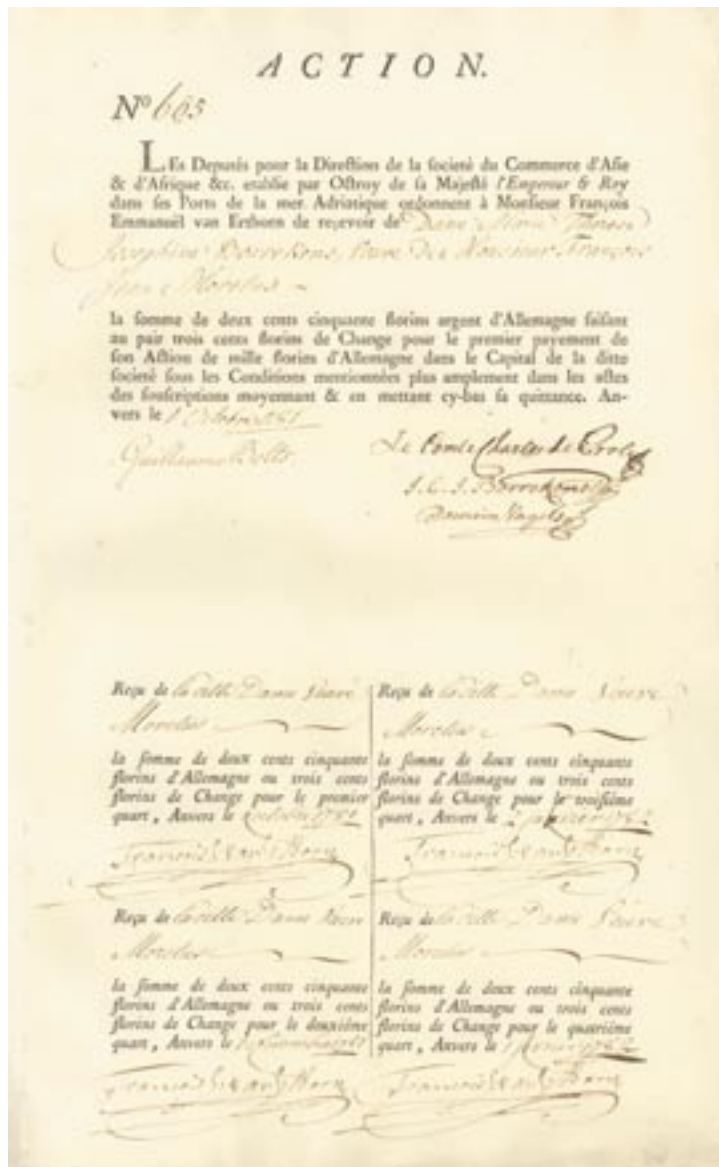 ACTION.
Nº 603
LEs Deputés pour la Direction de la societé du Commerce d'Asie
& d'Afrique &c. etablie par Octroy de sa Majesté l'Empereur & Roy
dans ses Ports de la mer Adriatique ordonnent à Monsieur François
Emmanuel van Ertborn de reçevoir de Dame Marie Therese
Josephine Veuve de Monsieur François
Jean Moretus
la somme de deux cents cinquante florins argent d'Allemagne faisant
au pair trois cents florins de Change pour le premier payement de
son Action de mille florins d'Allemagne dans le Capital de la ditte
societé sous les Conditions mentionnées plus amplement dans les actes
des souscriptions moyennant & en mettant cy-bas sa quittance. An-
vers le
Guillaume Bolts
Le Comte Charles de Proli
Reçu de laditte Dame Veuve
Moretus
la somme de deux cents cinquante
florins d'Allemagne ou trois cents
florins de Change pour le premier
quart, Anvers le 1781
Reçu de laditte Dame Veuve
Moretus
la somme de deux cents cinquante
florins d'Allemagne ou trois cents
florins de Change pour le troisiéme
quart, Anvers le 1782
Reçu de laditte Dame Veuve
Moretus
la somme de deux cents cinquante
florins d'Allemagne ou trois cents
florins de Change pour le deuxiéme
quart, Anvers le
Reçu de laditte Dame Veuve
Moretus
la somme de deux cents cinquante
florins d'Allemagne ou trois cents
florins de Change pour le quatriéme
quart, Anvers le 1782